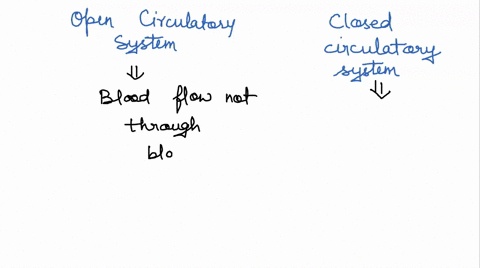 Open Circulatory
System
⇓
Blood flow not
through
blo
Closed
circulatory
system
⇓